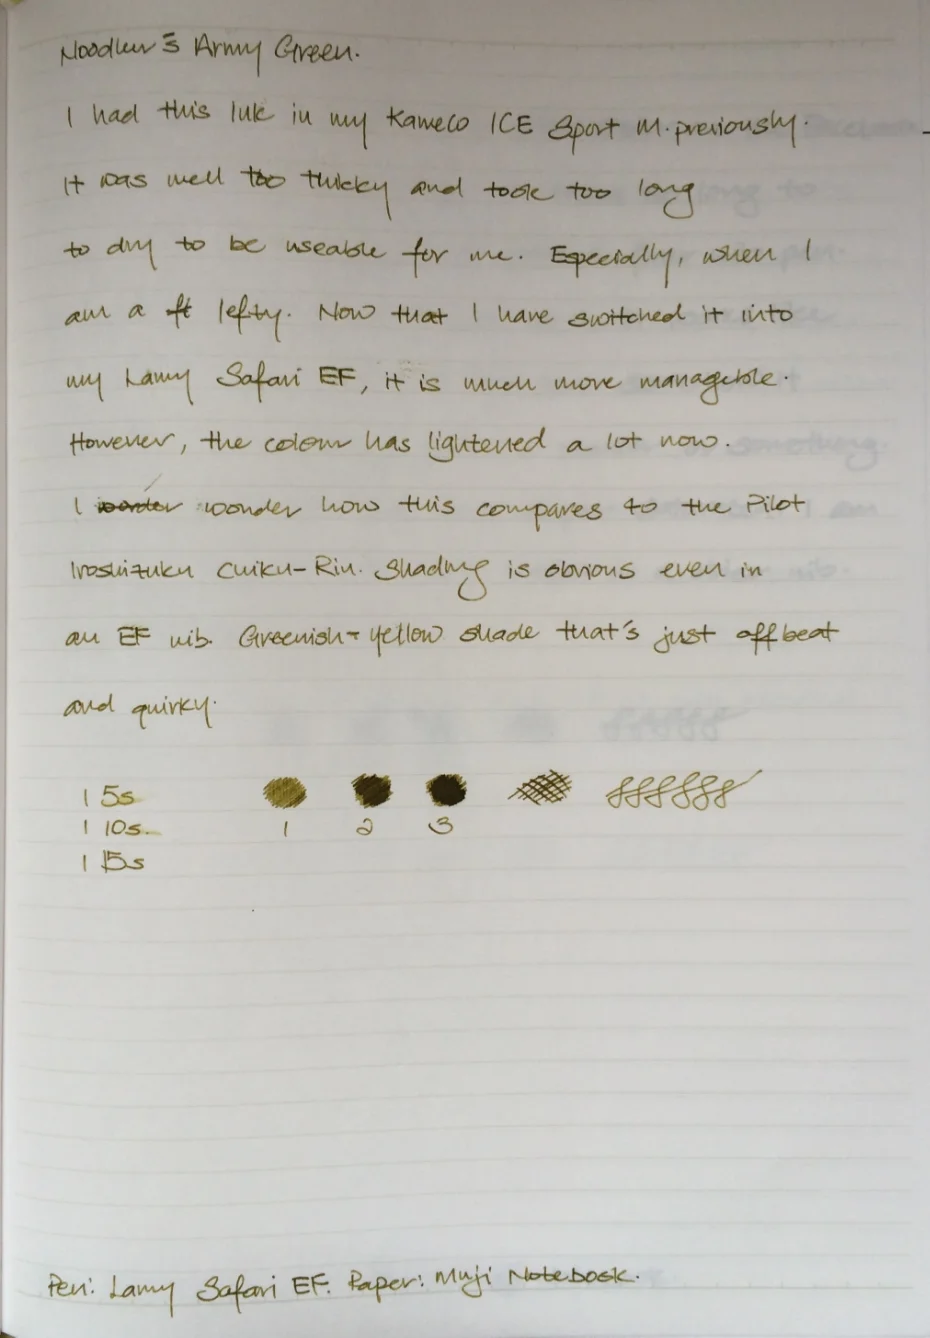 Noodler's Army Green.
I had this Ink in my Kaweco ICE Sport M. previously.
It was well too thicky and took too long
to dry to be useable for me. Especially, when I
am a ft lefty. Now that I have switched it into
my Lamy Safari EF, it is much more managable.
However, the colour has lightened a lot now.
I wonder wonder how this compares to the Pilot
Iroshizuku Chiku-Rin. Shading is obvious even in
an EF nib. Greenish-yellow shade that's just offbeat
and quirky.
| 5s
| 10s.
| 15s
1 2 3
Pen: Lamy Safari EF. Paper: Muji Notebook.